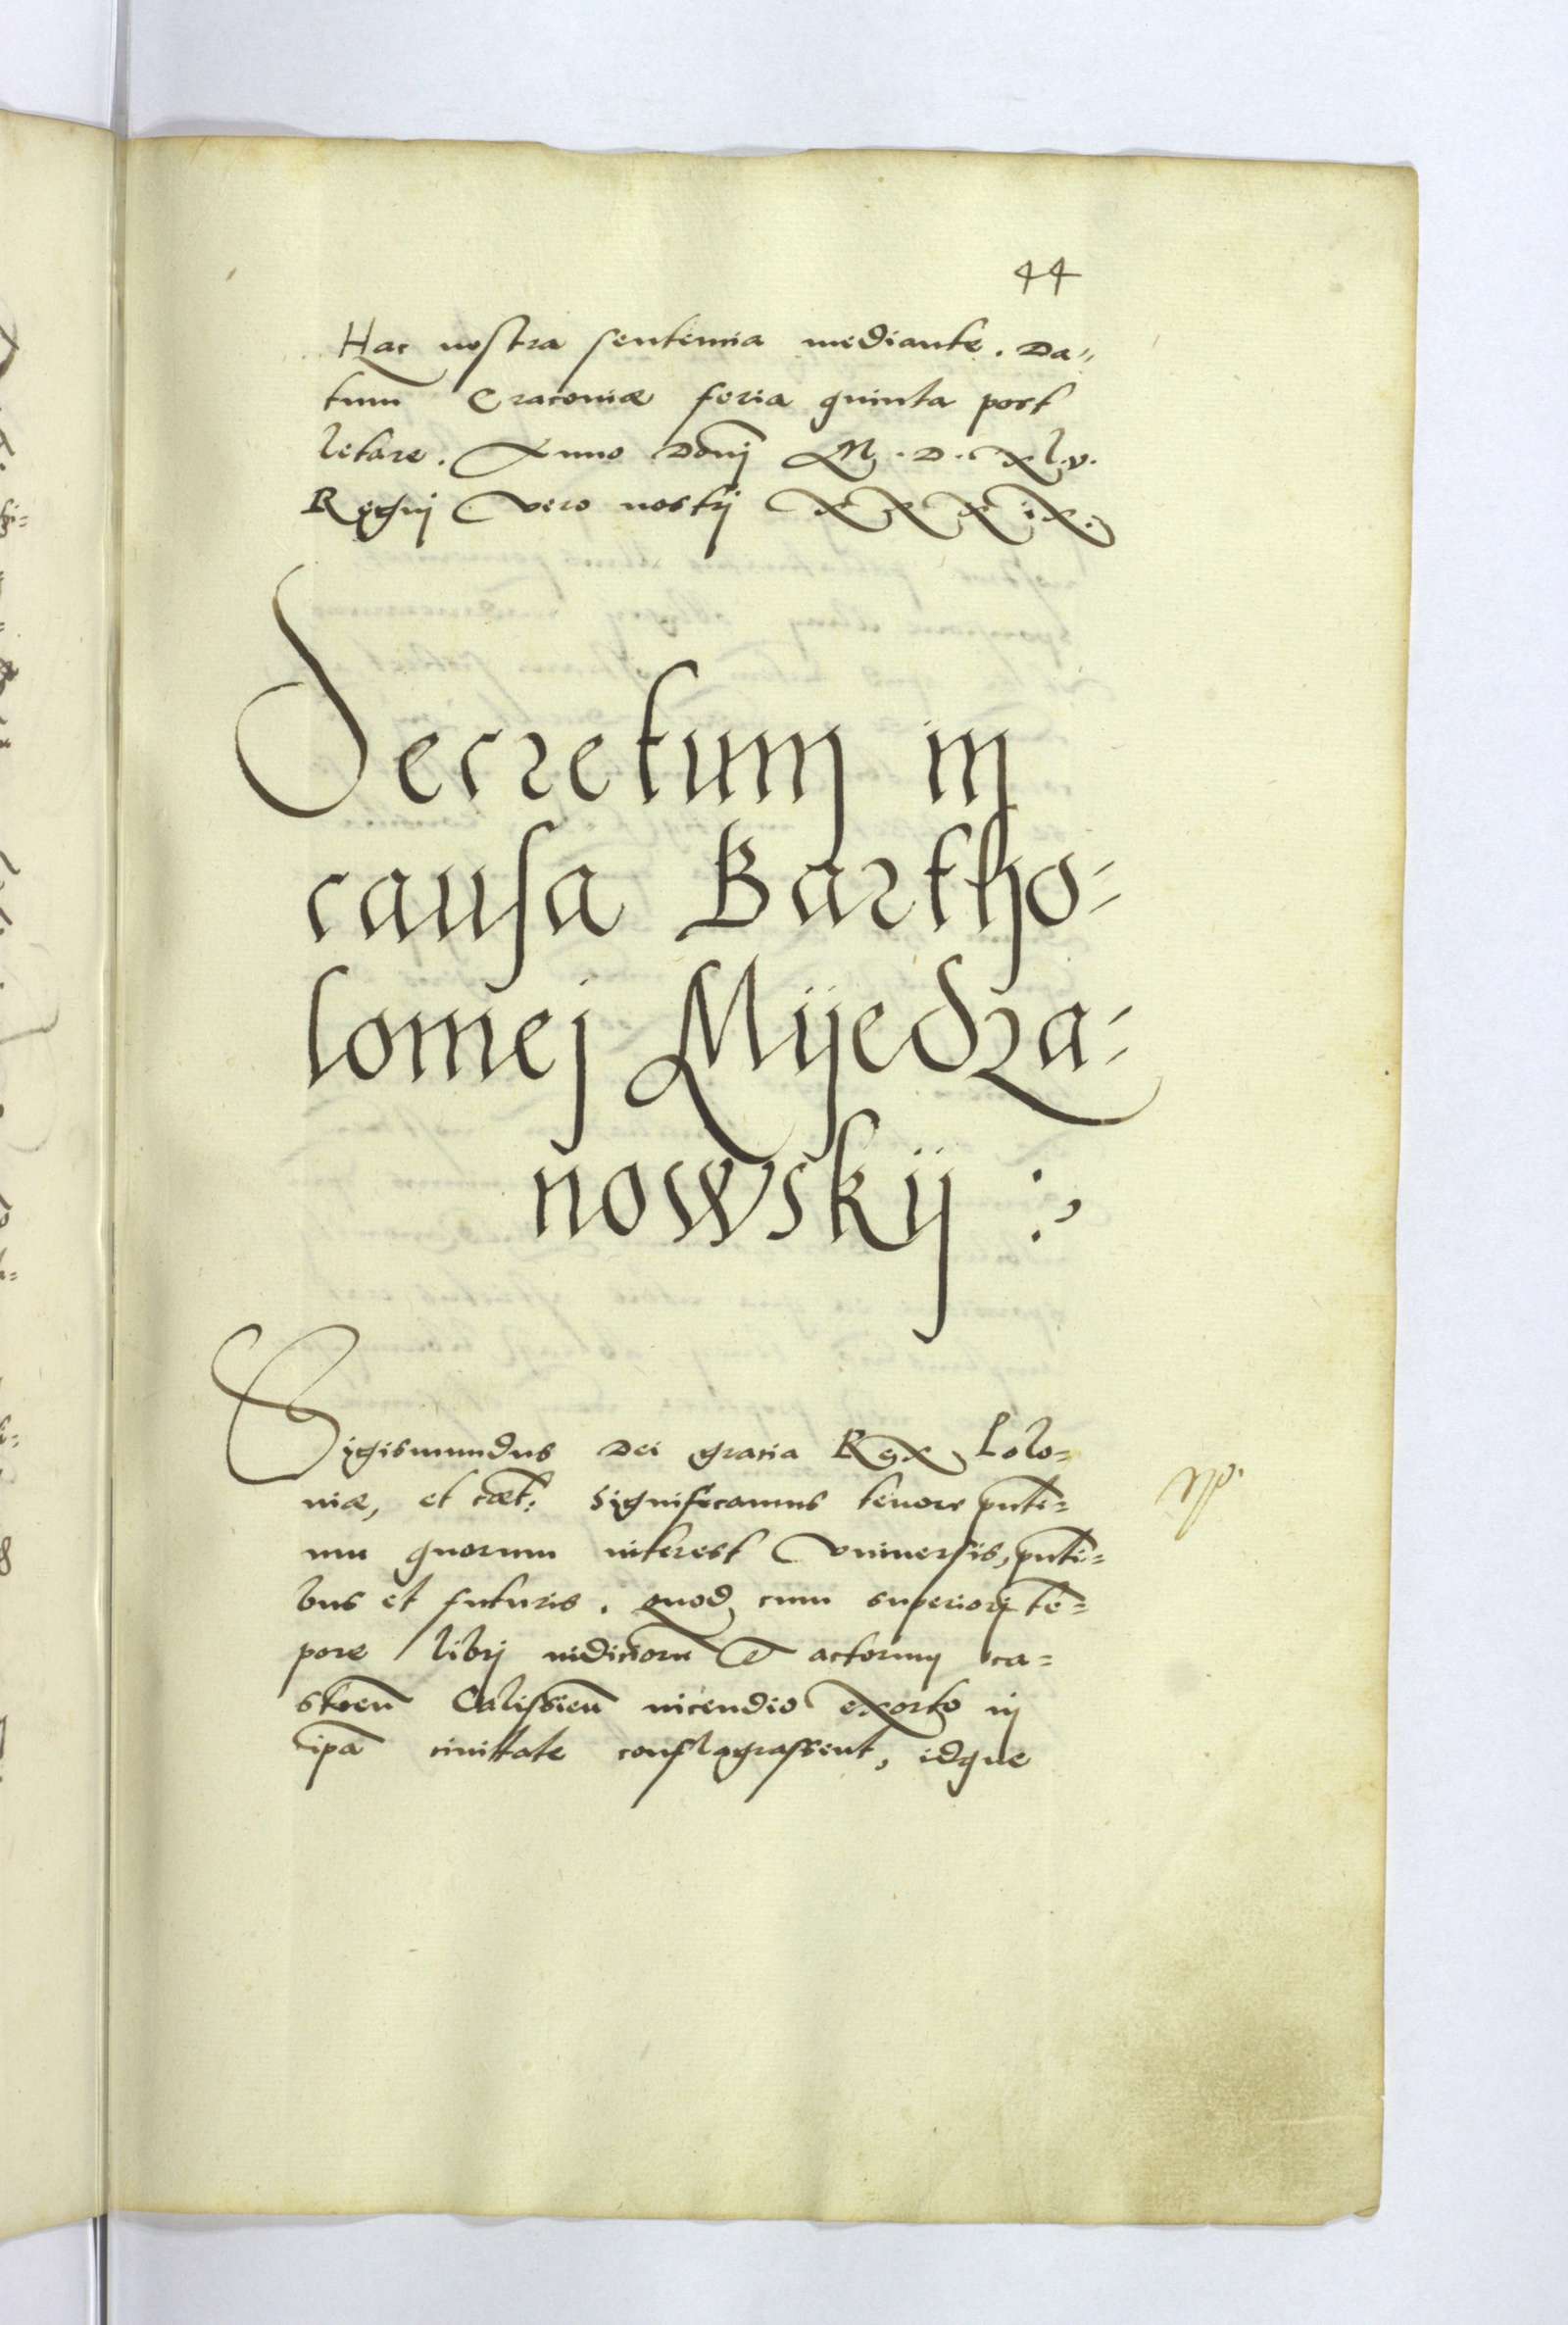 44
Hac nostra sententia mediante. Da=
tum Cracoviæ feria quinta post
letare. Anno Domj M. D. xl.v.
Regnj vero nostrj XXXiX.
Decretum in
causa Bartho=
lomej Mijedza=
nowskij :
Sigismundus Dei gracia Rex Polo=
niæ, et cæt: Significamus tenore pnti=
um quorum interest Vniuersis, pnti=
bus et futuris. Quod cum superiorj te=
pore librj iudiciorũ et actorum ca=
strẽn Calissiẽn incendio exorto in
ipã ciuittate conflagrassent, idque